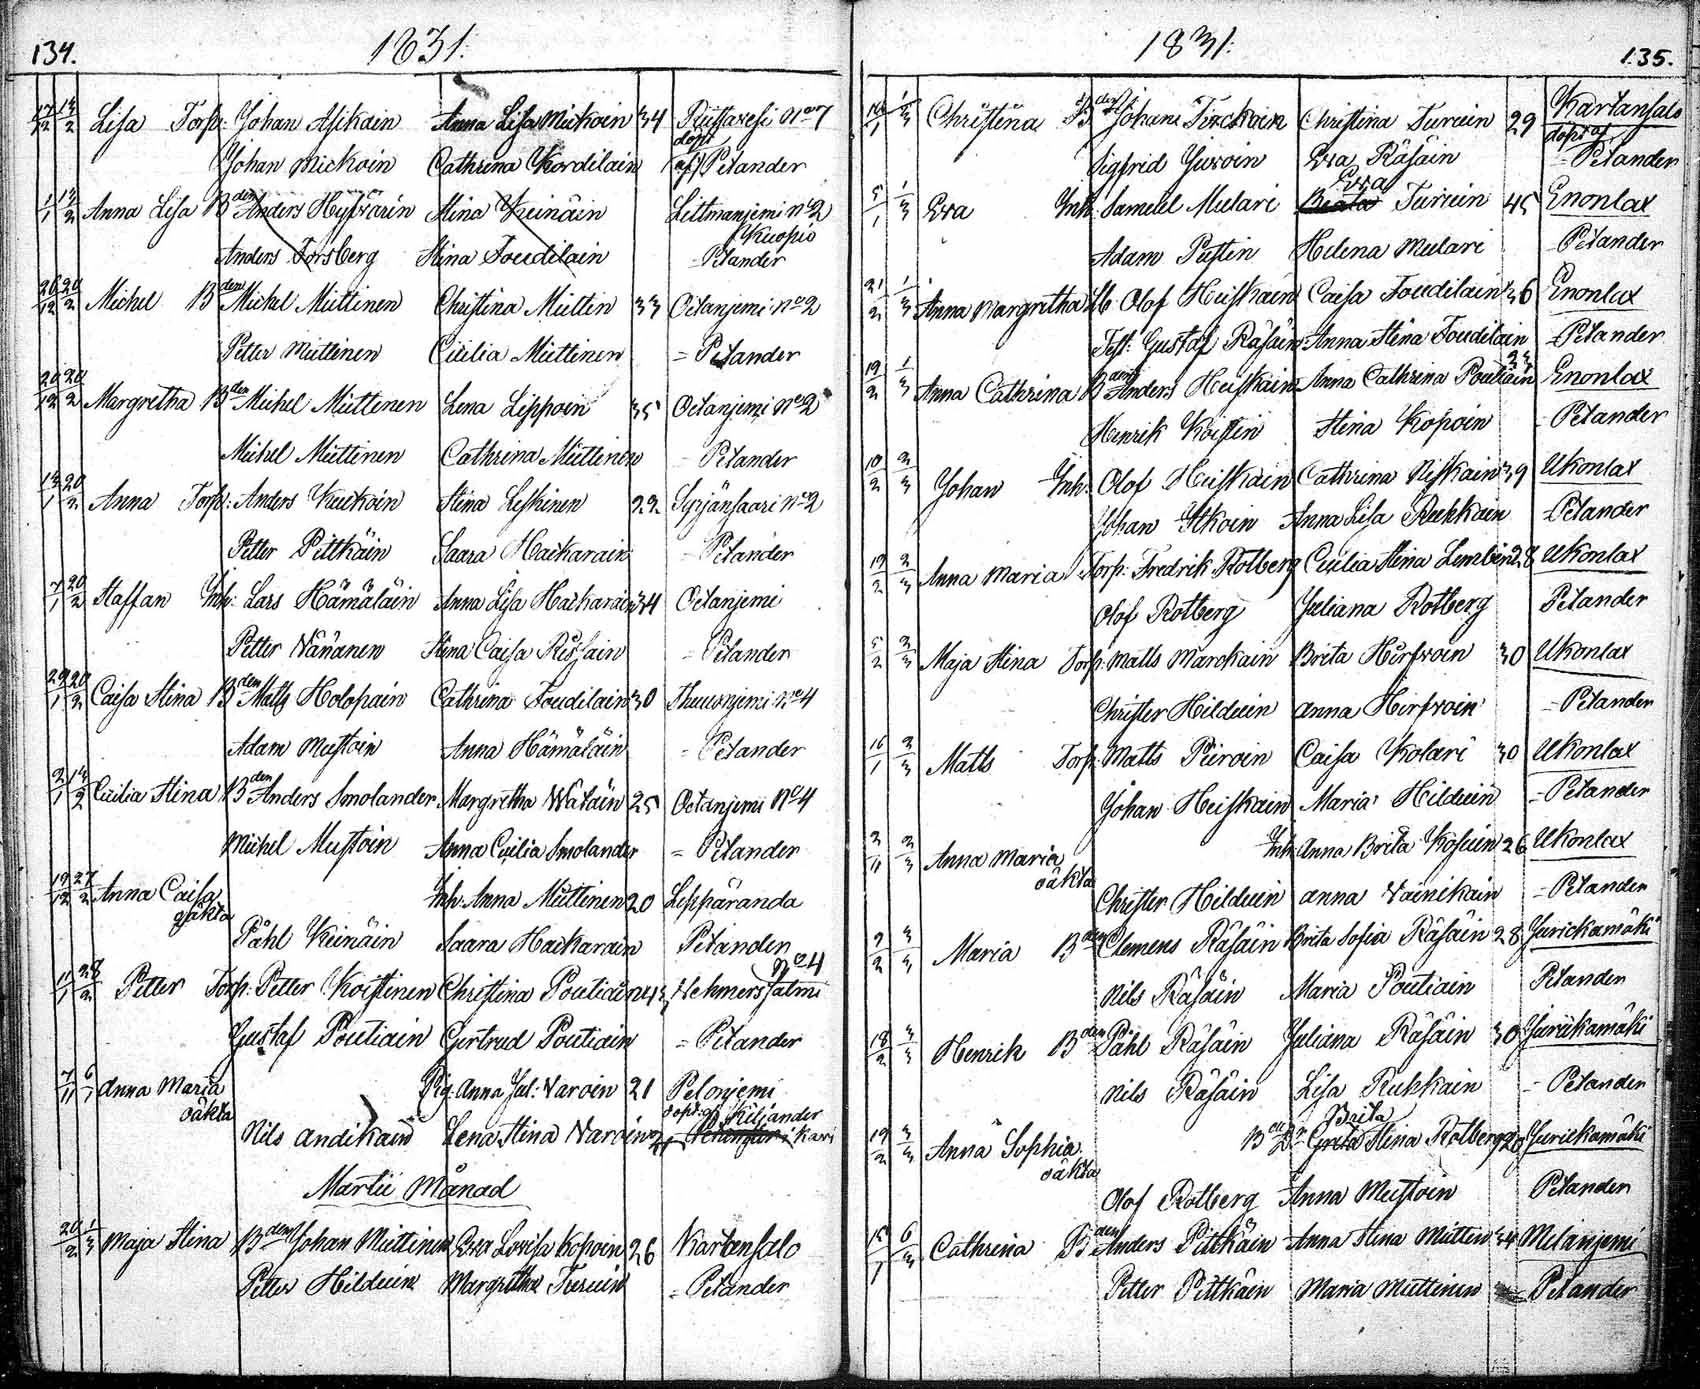 134. 1831.
17/12 13/2 Lisa Torp: Johan Asikain Anna Lisa Mickoin 34 No 7
dopt
Johan Mickoin Cathrina Kordilain af Petander
1/1 13/2 Anna Lisa Bden Anders Hyfvärin Stina Keinäin No 2
Kuopio
Anders Forsberg Stina Toudilain = Petander
26/12 20/2 Michel Bden Michel Miettinen Christina Miettin 33 Oitanjemi No 2
Petter Miettinen Cicilia Miettinen = Petander
20/12 20/2 Margretha Bden Michel Miettinen Lena Lippoin 35 Oitanjemi No 2
Michel Miettinen Cathrina Miettinen = Petander
13/1 20/2 Anna Torp: Anders Kuckoin Stina Leskinen 22 Syrjänsaari No 2
Petter Pittkäin Saara Hackarain = Petander
7/1 20/2 Staffan Inh: Lars Hämäläin Anna Lisa Hackarain 34 Oitanjemi
Petter Nänänen Stina Caisa Rissain = Petander
29/1 20/2 Caisa Stina Bden Matts Holopain Cathrina Toudilain 30 No 4
Adam Mustoin Anna Hämäläin = Petander
2/1 13/2 Cicilia Stina Bden Anders Smolander Margretha Wätäin 25 Oitanjemi No 4
Michel Mustoin Anna Cicilia Smolander = Petander
19/12 27/2 Anna Caisa Inh: Anna Miettinen 20 Leppäranda
oäkta
Påhl Keinäin Saara Hackarain Petander
No 4
11/1 28/2 Petter Torp: Petter Koistinen Christina Poutiain 43 Wehmersalmi
Gustaf Poutiain Gertrud Poutiain = Petander
7/11 6/1 Anna Maria Pig: Anna Jul: Varoin 21 Pelonjemi
oäkta dopt: af Kiljander
Nils Andikain Lena Stina Varoin i Kavi
Martii Månad
20/2 1/3 Maja Stina Bden Johan Miettinen Eva Lovisa Kopoin 26 Kartansalo
Petter Hilduin Margretha Turuin = Petander
1831. 135.
16/1 1/3 Christina Bden Johan Tirckoin Christina Turuin 29 Kartansalo
dopt af
Sigfrid Juvoin Eva Räsäin = Petander
Eva
5/1 1/3 Eva Inh: Samuel Mulari Beata Turuin 45 Enonlax
Adam Pustin Helena Mulari = Petander
21/2 1/3 Anna Margretha Olof Heiskain Caisa Toudilain 36 Enonlax
Test: Gustaf Räsäin Anna Stina Toudilain = Petander
23
19/2 1/3 Anna Cathrina Bden Anders Heiskain Anna Cathrina Poutiain Enonlax
Henrik Koistin Stina Kopoin = Petander
10/2 2/3 Johan Inh: Olof Heiskain Cathrina Niskain 39 Ukonlax
Johan Itkoin Anna Lisa Ruhkain = Petander
19/2 2/3 Anna Maria Torp: Fredrik Rotberg Cicilia Stina Lembin 28 Ukonlax
Olof Rotberg Juliana Rotberg Petander
5/2 2/3 Maja Stina Torp: Matts Marckain Brita Hirfvoin 30 Ukonlax
Christer Hilduin Anna Hirfvoin = Petander
16/1 2/3 Matts Torp: Matts Piiroin Caisa Kolari 30 Ukonlax
Johan Heiskain Maria Hilduin = Petander
2/11 2/3 Anna Maria Inh: Anna Brita Kosuin 26 Ukonlax
oäkta
Christer Hilduin Anna Vainikain = Petander
2/2 3/3 Maria Bden Clemens Räsäin Brita Sofia Räsäin 28 Jurickamäki
Nils Räsäin Maria Poutiain Petander
18/2 3/3 Henrik Bden Påhl Räsäin Juliana Räsäin 30 Jurickamäki
Nils Räsäin Lisa Ruhkain = Petander
Brita
19/2 3/3 Anna Sophia Greta Stina Rotberg 20 Jurickamäki
oäkta
Olof Rotberg Anna Mustoin Petander
15/1 6/3 Cathrina Bden Anders Pittkäin Anna Stina Miettin 34 Melanjemi
Petter Pittkäin Maria Miettinen = Petander